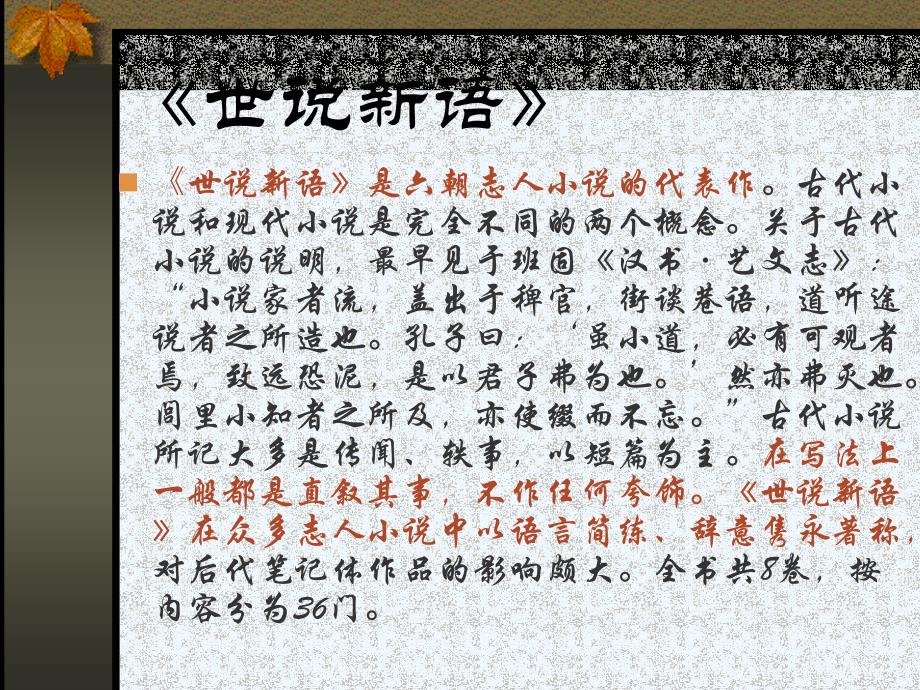 《世说新语》
《世说新语》是六朝志人小说的代表作。古代小
说和现代小说是完全不同的两个概念。关于古代
小说的说明，最早见于班固《汉书·艺文志》：
“小说家者流，盖出于稗官，街谈巷语，道听途
说者之所造也。孔子曰：‘虽小道，必有可观者
焉，致远恐泥，是以君子弗为也。’然亦弗灭也。
闾里小知者之所及，亦使缀而不忘。”古代小说
所记大多是传闻、轶事，以短篇为主。在写法上
一般都是直叙其事，不作任何夸饰。《世说新语
》在众多志人小说中以语言简练、辞意隽永著称，
对后代笔记体作品的影响颇大。全书共8卷，按
内容分为36门。